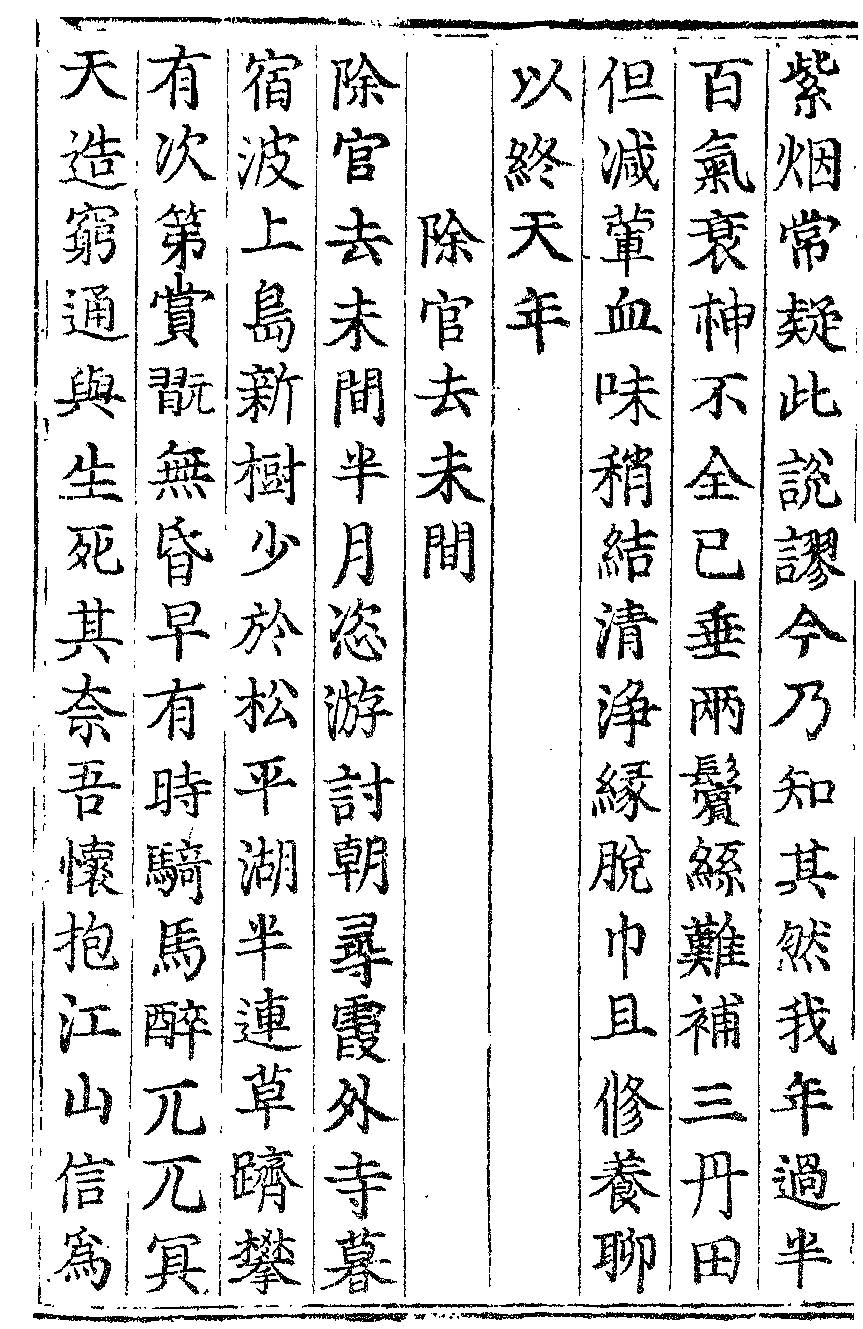 紫烟常疑此說謬今乃知其然我年過半
百氣衰神不全已垂兩鬢絲難補三丹田
但減葷血味稍結清淨縁脫巾且修養聊
以終天年
除官去未間
除官去未間半月恣游討朝尋霞外寺暮
宿波上島新樹少於松平湖半連草躋攀
有次第賞翫無昏早有時騎馬醉兀兀冥
天造窮通與生死其奈吾懷抱江山信爲